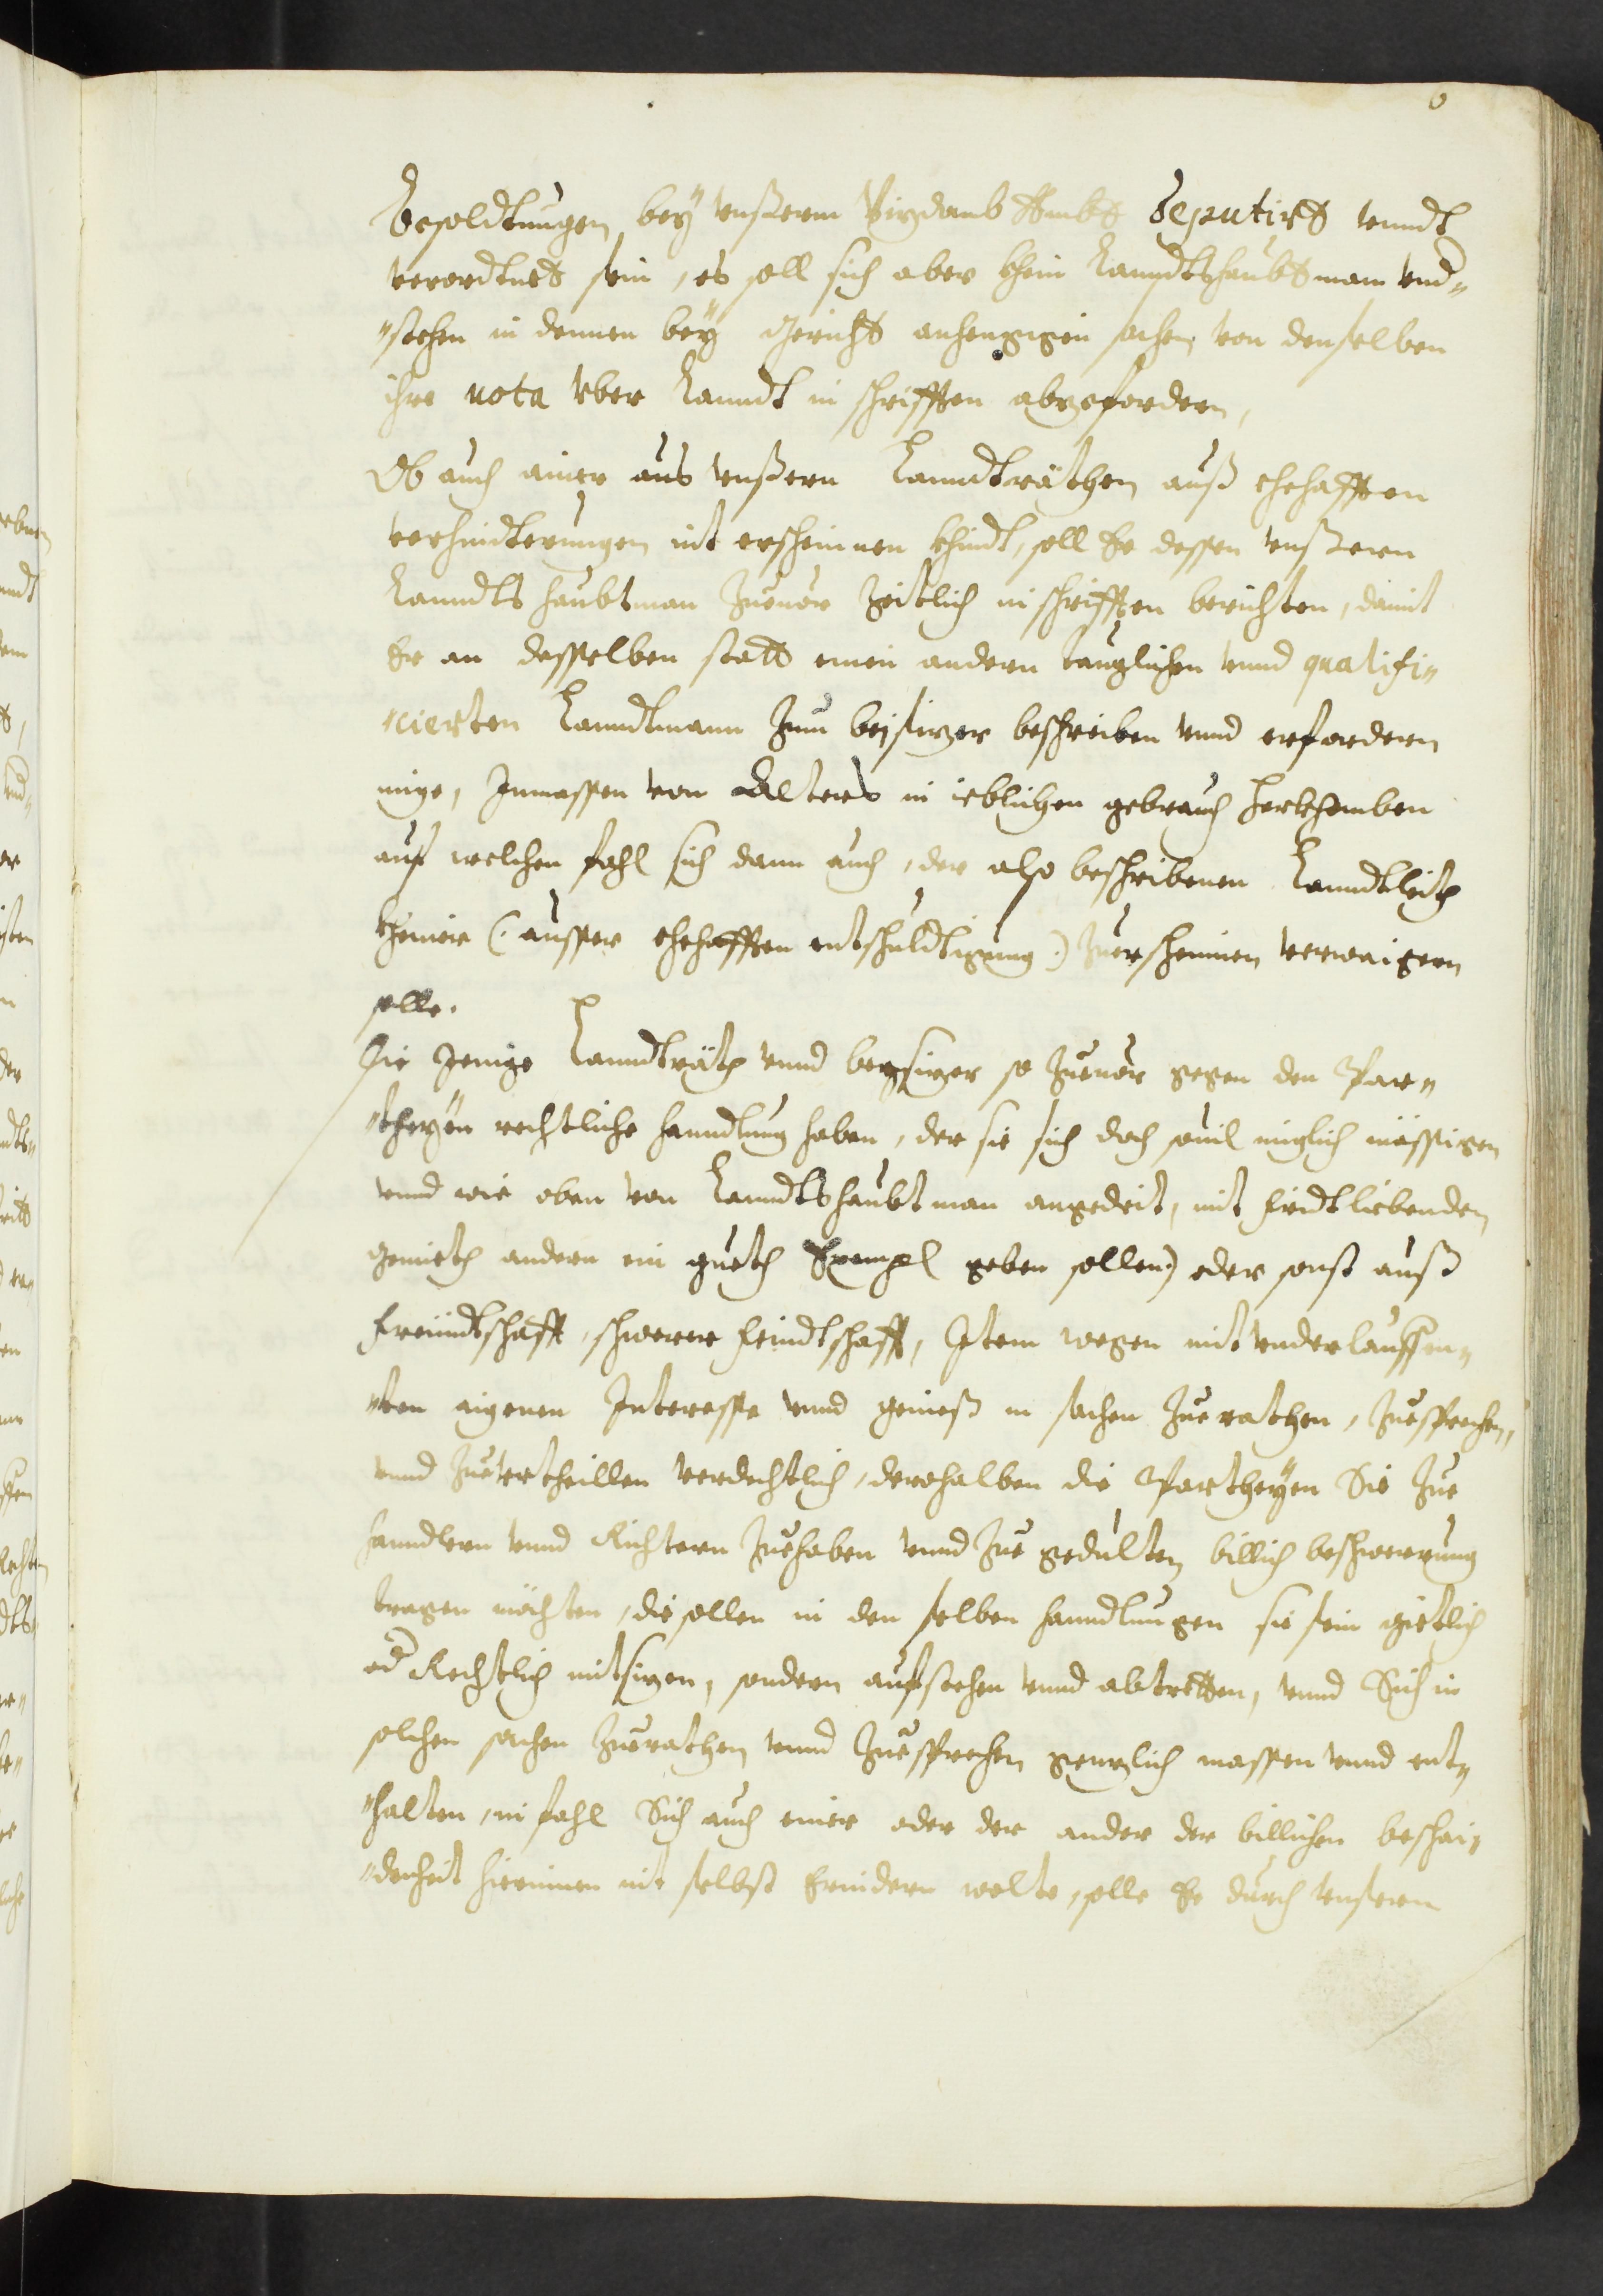 6
Besoldtungen bey unßerm Vizdomb Ambt deputirt unndt
verordtnet sein, es soll sich aber khein Lanndtshaubtman und„
„stehen in dennen bey Gericht anhenggigen sachen von denselben
ihre vota über Lanndt in schrifften abzefordern,
Ob auch ainer aus unßern Lanndträthen auß ehehafften
verhindterungen nit erscheinnen khindt, soll Er dessen unßern
Lanndtshaubtman zuuor zeitlich in schrifften berichten, damit
Er an desselben statt einen andern tauglichen unnd qualifi„
„cierten Lanndtmann zum beysizer beschreiben unnd erfordern
mige, Inmassen von Alters in ieblichen gebrauch herkhomben
auf welchen fahl sich dann auch, der also beschribenen Lanndtleith
kheiner (: ausser ehehafften entschuldtigung :) zuerscheinnen verwaigern
solle.
Die Jenige Lanndträth unnd beysizer so zuuor gegen den Par„
„theyen rechtliche hanndlung haben, der sie sich doch souil miglich mässigen
unnd wie oben von Lanndtshaubtman angedeit, mit fridtliebenden
Gemieth andern ein gueth Exempl geben sollen) oder sonst auß
freündtschafft, schwerer feindtschafft, Item wegen mit underlauffen„
„ten aigenen Interesse unnd genieß in sachen zuerathen, zuesprechen,
unnd zueurtheillen verdechtlich, derohalben die Partheyen Sie zue
hanndlern unnd Richtern zuehaben unnd zue gedulten billich beschwerung
tragen möchten, die sollen in denselben hanndlungen sie sein gietlich
od Rechtlich nit sizen, sondern aufstehen unnd abtretten, unnd Sich in
solchen sachen zuerathen unnd zuesprechen genzlich massen unnd ent„
„halten, in fahl Sich auch einer oder der ander der billichen beschai„
„denheit hierinnen nit selbst Erindern wolte, solle Er durch unsern